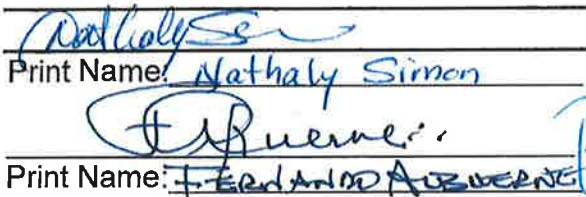 Nathaly
Print Name: Nathaly Simon
Print Name: FERNANDO ALBUERNE